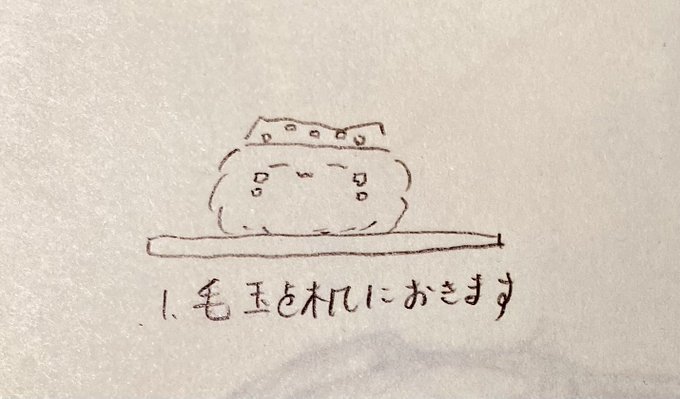 1. 毛玉を机におきます